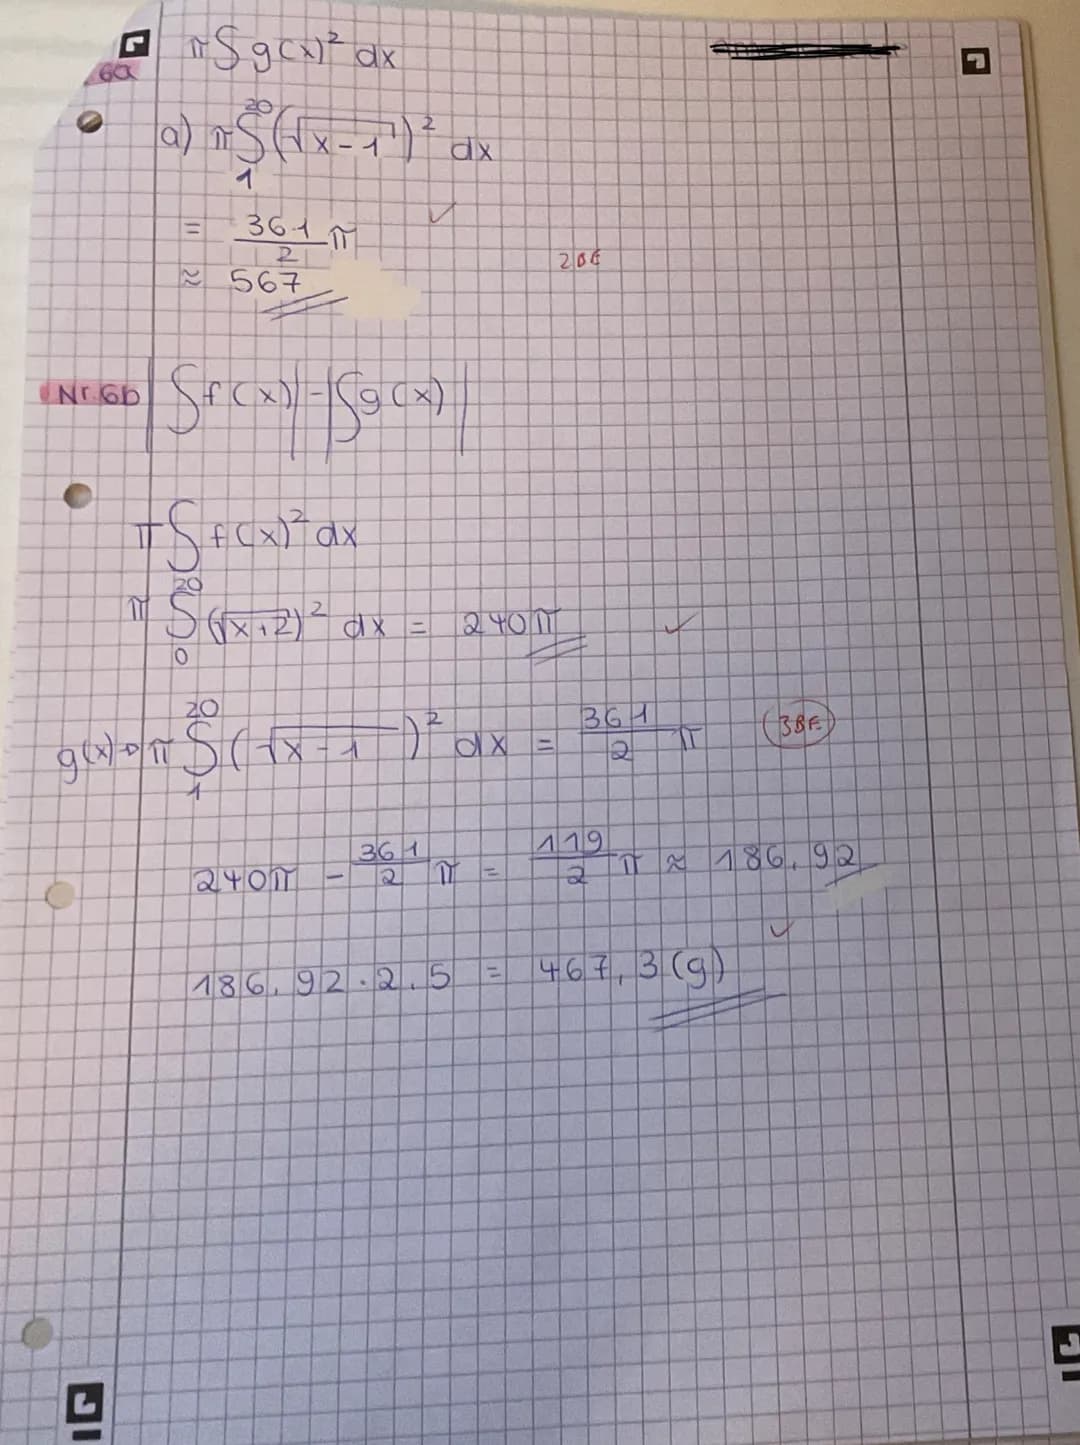 6a
π∫g(x)² dx
a) π∫₁²⁰(√x-1)² dx
= 361/2 π ✓
2BE
≈ 567
Nr. 6b |∫f(x)|-|∫g(x)|
π∫f(x)² dx
π∫₀²⁰(√x+2)² dx = 240π ✓
g(x)→π∫₁²⁰(√x-1)² dx = 361/2 π
3BE
240π - 361/2 π = 119/2 π ≈ 186,92
186,92·2,5 = 467,3(g) ✓